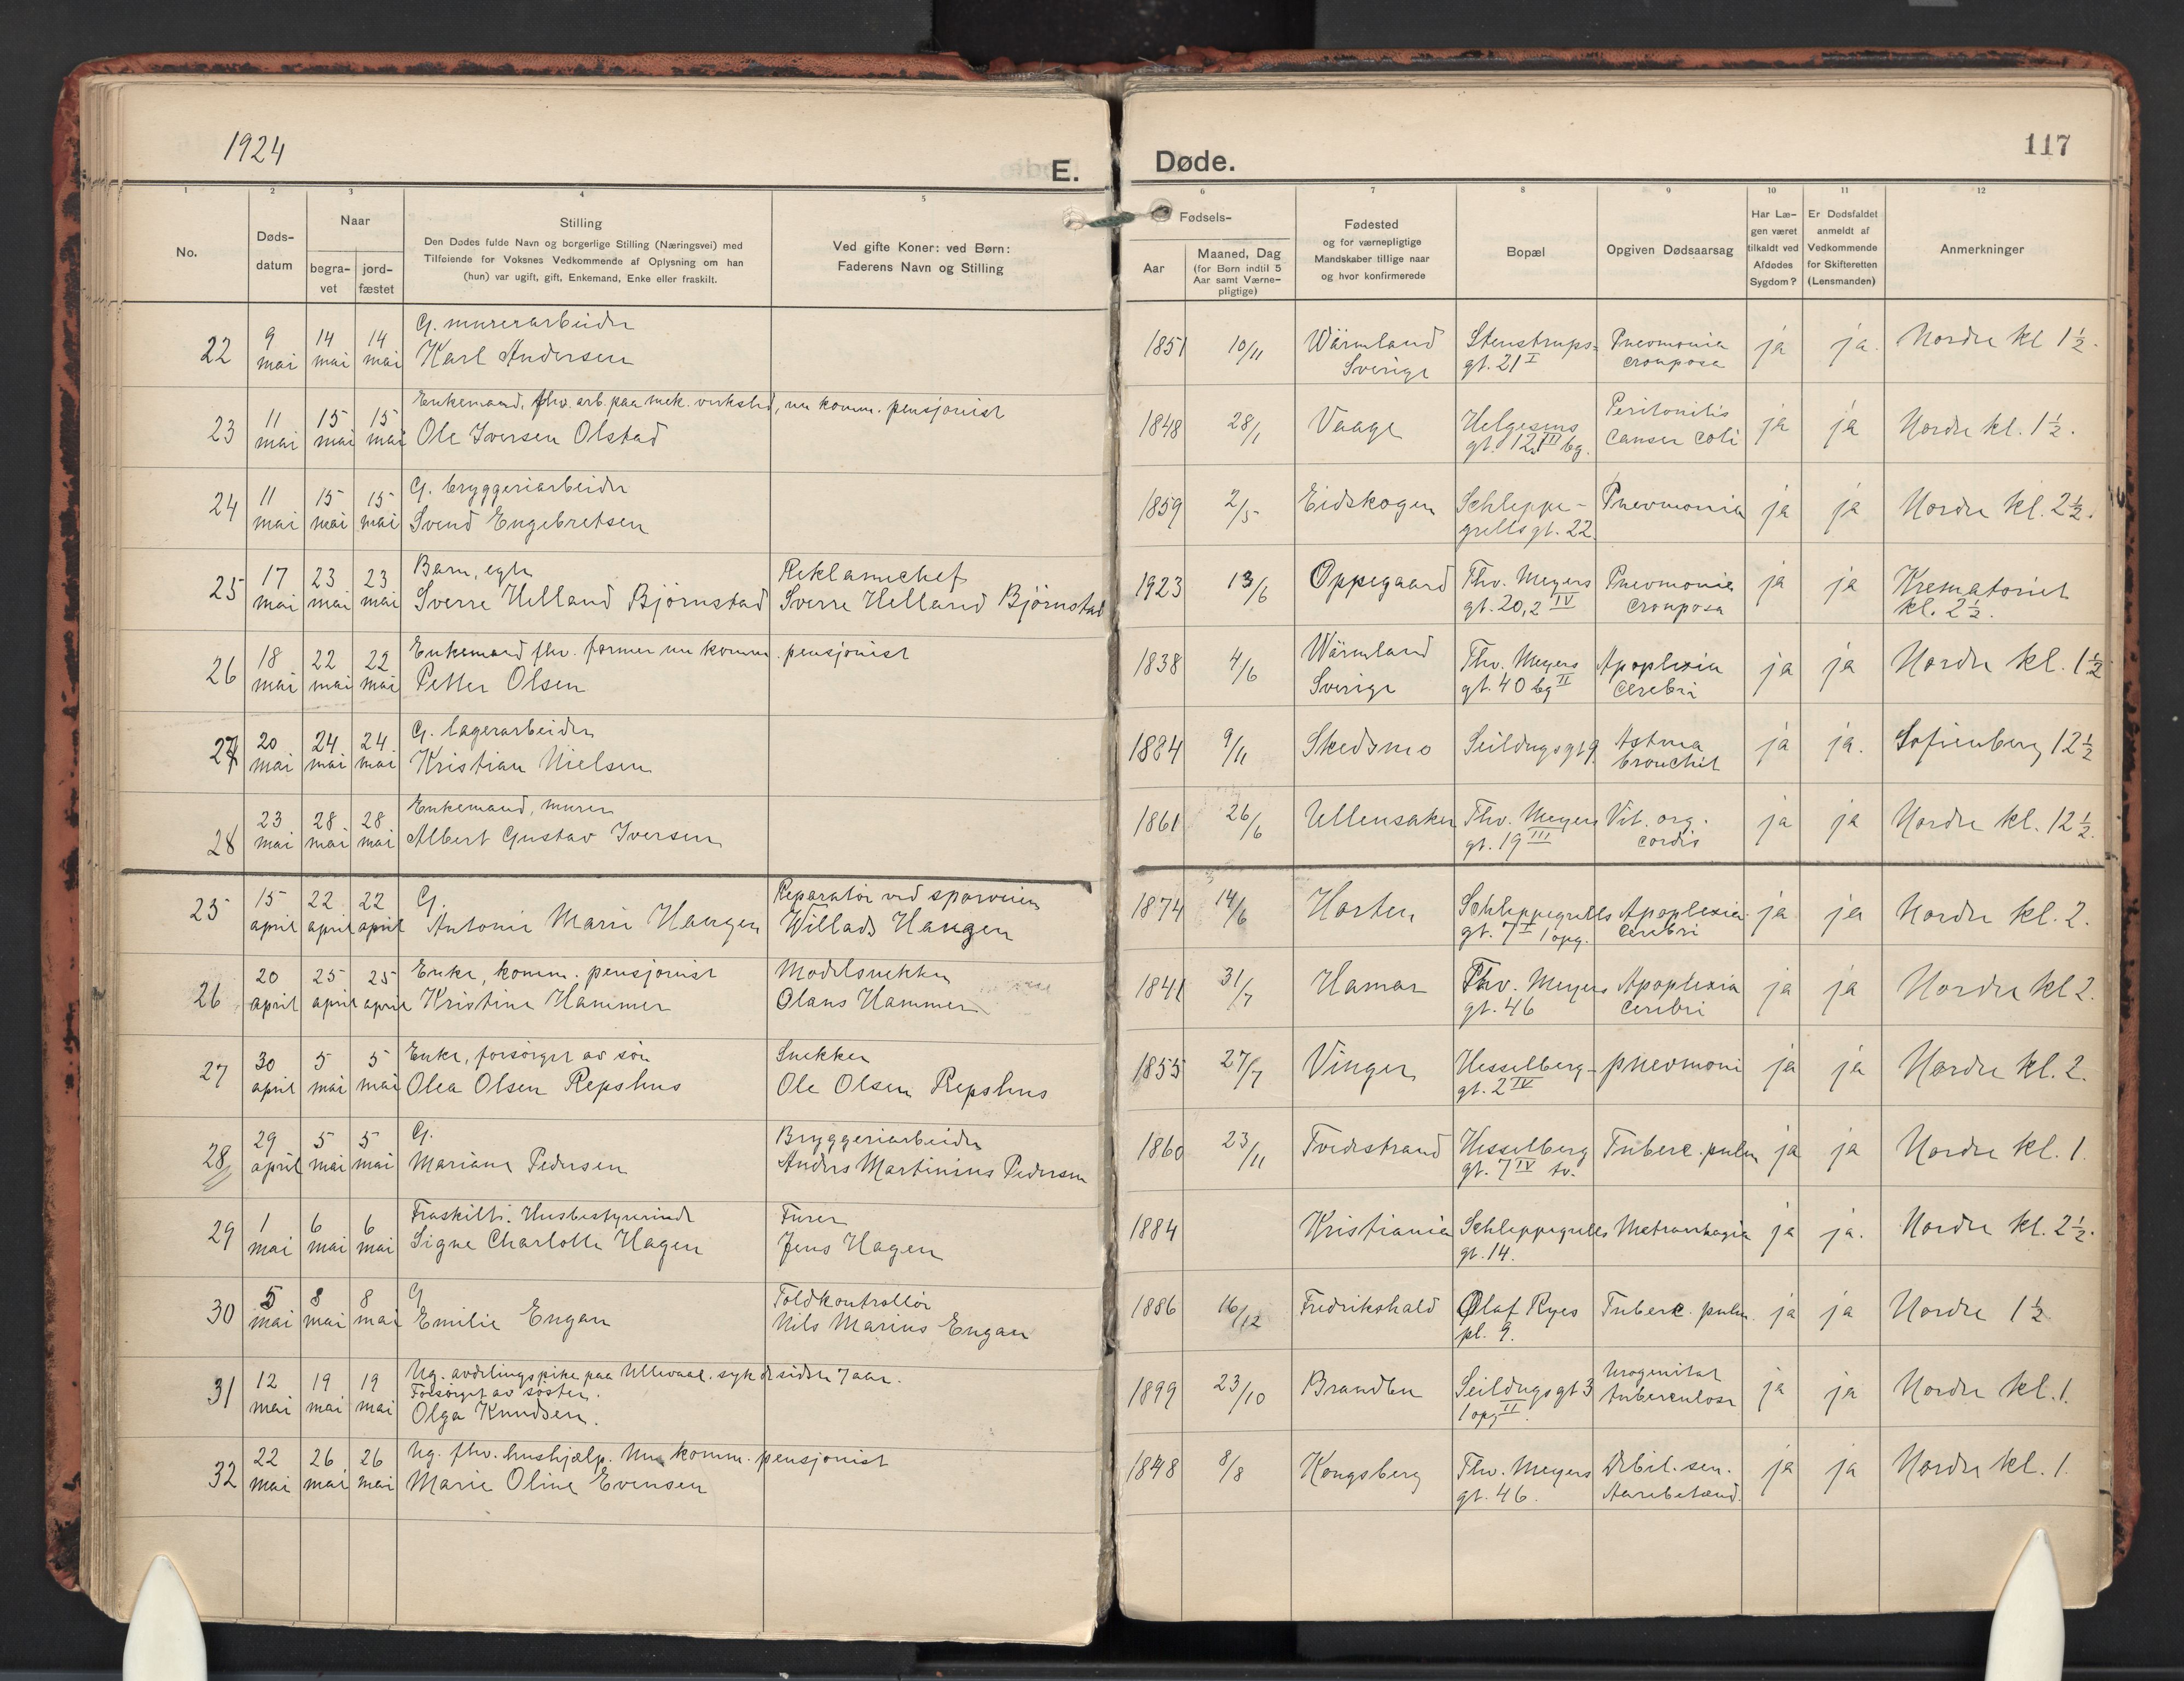 1924
E. Døde.
117
1 2 3 4 5 6 7 8 9 10 11 12
No.
Døds-datum
Naar
begra-vet
jord-fæstet
Stilling
Den Dødes fulde Navn og borgerlige Stilling (Næringsvei) med
Tilføiende for Voksnes Vedkommende af Oplysning om han
(hun) var ugift, gift, Enkemand, Enke eller fraskilt.
Ved gifte Koner: ved Børn:
Faderens Navn og Stilling
Fødsels-
Aar
Maaned, Dag
(for Børn indtil 5
Aar samt Værne-
pligtige)
Fødested
og for værnepligtige
Mandskaber tillige naar
og hvor konfirmerede
Bopæl
Opgiven Dødsaarsag
Har Læ-
gen været
tilkaldt ved
Afdødes
Sygdom?
Er Dødsfaldet
anmeldt af
Vedkommende
for Skifteretten
(Lensmanden)
Anmerkninger
22 9 mai 14 mai 14 mai G. murerarbeider Karl Andersen 1851 10/11 Wärmland Sverige Stenstrups-gt. 21 I Pneumonia crouposa ja ja. Nordre kl 1½.
23 11 mai 15 mai 15 mai Enkemand, fhv. arb. paa mek. verksted, nu komm. pensjonist Ole Iversen Olstad 1848 28/1 Vaage Helgesens gt. 12 III bg. Peritonitis Canser coli ja ja Nordre kl. 1½.
24 11 mai 15 mai 15 mai G. bryggeriarbeider Svend Engebretsen 1859 2/5 Eidskogen Schleppe-grells gt. 22. Pnevmonia ja ja Nordre kl. 2½.
25 17 mai 23 mai 23 mai Barn, egte Sverre Helland Björnstad Reklamechef Sverre Helland Björnstad 1923 13/6 Oppegaard Thv. Meyers gt. 20,2 IV Pnevmonia crouposa ja ja Krematoriet kl. 2½.
26 18 mai 22 mai 22 mai Enkemand fhv. former nu komm. pensjonist Petter Olsen 1838 4/6 Wärmland Sverige Thv. Meyers gt. 40 bg II Apoplexia cerebri ja ja Nordre kl. 1½
27 20 mai 24 mai 24 mai G. lagerarbeider Kristian Nielsen 1884 9/11 Skedsmo Seildugsgt 9. Astma bronchit ja ja. Sofienberg 12½
28 23 mai 28 mai 28 mai Enkemand, murer Albert Gustav Iversen 1861 26/6 Ullensaker Thv. Meyers gt. 19 III Vit. org. cordis ja ja Nordre kl. 12½.
25 15 april 22 april 22 april G. Antonie Marie Haugen Reparatör ved sporveien Willads Haugen 1874 14/6 Horten Schleppegrells gt. 7 I 1 opg. Apoplexia cerebri ja ja Nordre kl. 2.
26 20 april 25 april 25 april Enke, komm. pensjonist Kristine Hammer Modelsnekker Olaus Hammer 1841 31/7 Hamar Thv. Meyers gt. 46 Apoplexia cerebri ja ja Nordre kl 2.
27 30 april 5 mai 5 mai Enke, forsörget av sön Olea Olsen Repshus Snekker Ole Olsen Repshus 1855 27/7 Vinger Hesselberg-gt. 2 IV pnevmoni ja ja Nordre kl. 2.
28 29 april 5 mai 5 mai G. Mariane Pedersen Bryggeriarbeider Anders Martinius Pedersen 1860 23/11 Tvedestrand Hesselberg gt. 7 IV tv. Tuberc. pulm ja ja Nordre kl. 1.
29 1 mai 6 mai 6 mai Fraskilt. Husbestyrerinde Signe Charlotte Hagen Furer Jens Hagen 1884 Kristiania Schleppegrells gt. 14. Metrorrhagia ja ja. Nordre kl. 2½.
30 5 mai 8 mai 8 mai G Emilie Engan Toldkontrollör Nils Marius Engan 1886 16/12 Fredrikshald Olaf Ryes pl. 9. Tuberc. pulm. ja ja Nordre 1½
31 12 mai 19 mai 19 mai Ug. avdelingspike paa Ullevaal. syk de sidste 7 aar. Forsörget av söster. Olga Knudsen. 1899 23/10 Brandbu Seildugsgt 3 1 opg II. Urogenital tuberculose ja ja Nordre kl. 1.
32 22 mai 26 mai 26 mai Ug. fhv. hushjælp. Nu komm. pensjonist Marie Oline Evensen 1848 8/8 Kongsberg Thv. Meyers gt. 46. Debil. sen. Aarebetænd. ja ja Nordre kl. 1.